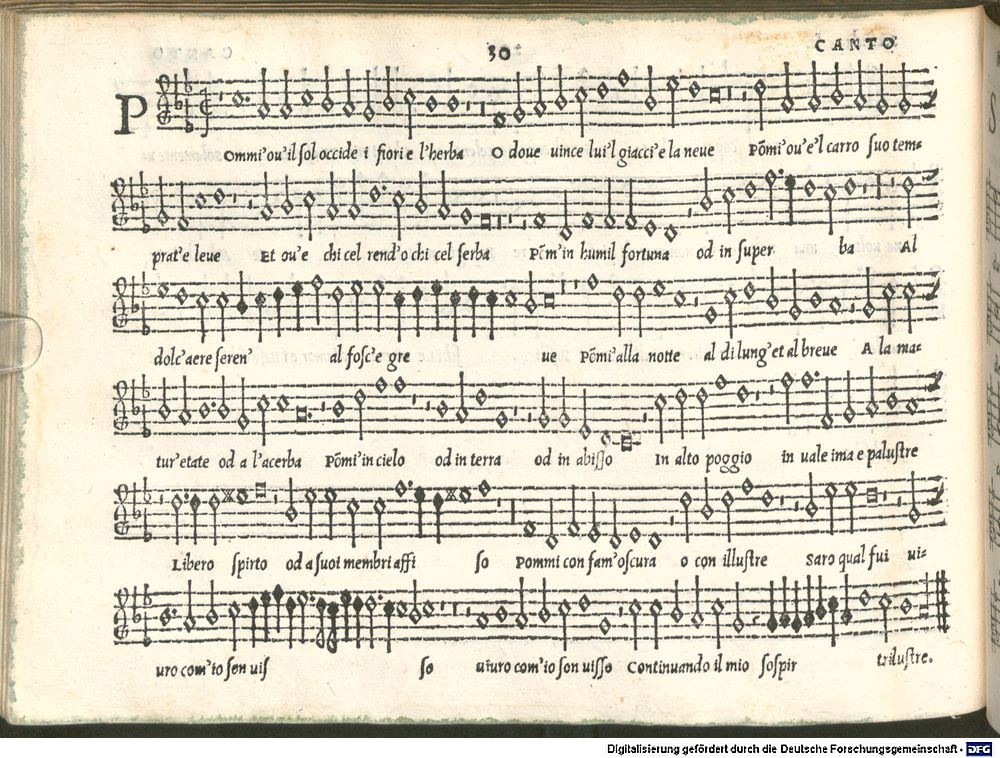 30
CANTO
Pommi'ou'il sol occide i fiori e l'herba O doue uince lui'l giacci'e la neue Põmi'ou'e'l carro suo tem-
prat'e leue Et ou'e chi cel rend'o chi cel serba Põm'in humil fortuna od in super ba Al
dolc'aere seren' al fosc'e gre ue Põmi'alla notte al di lung'et al breue A la ma-
tur'etate od a l'acerba Põmi'in cielo od in terra od in abisso In alto poggio in uale ima e palustre
Libero spirto od a suoi membri affi so Pommi con fam'oscura o con illustre Saro qual fui ui-
uro com'io son uis so uiuro com'io son uisso Continuando il mio sospir trilustre.
Digitalisierung gefördert durch die Deutsche Forschungsgemeinschaft - DFG